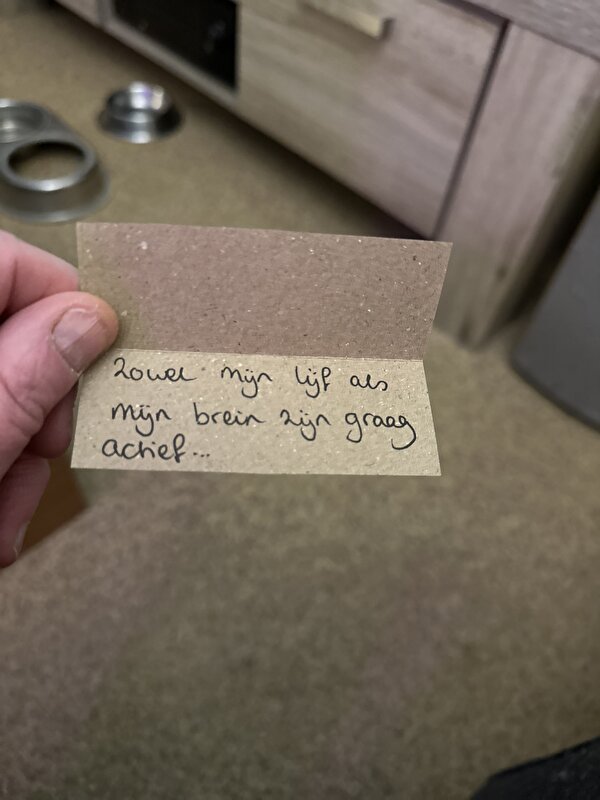 Zowel mijn lijf als
mijn brein zijn graag
actief...